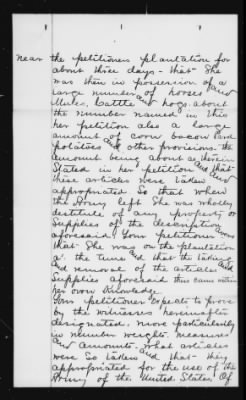 near the petitioners plantation for
about three days - that She
was then in possession of a
large number of horses and
Mules, Cattle and hogs. about
the number named in this
her petition also a large
amount of Corn bacon lard
potatoes and other provisions. the
amount being about as herein
Stated in her petition and that
these articles were taken and
appropriated So that when
the Army left She was wholly
destitute of any property or
Supplies of the description
aforesaid. Your petitioner
that She was on the plantation
at the time and that the taking
and removal of the articles and
Supplies aforesaid thus came within
her own Knowledge.
Your petitioner Expects to prove
by the witnesses hereinafter
designated, more particularly
in number weight measures
and amounts. What articles
were So taken and that they
appropriated for the use of the
Army of the United States, Of